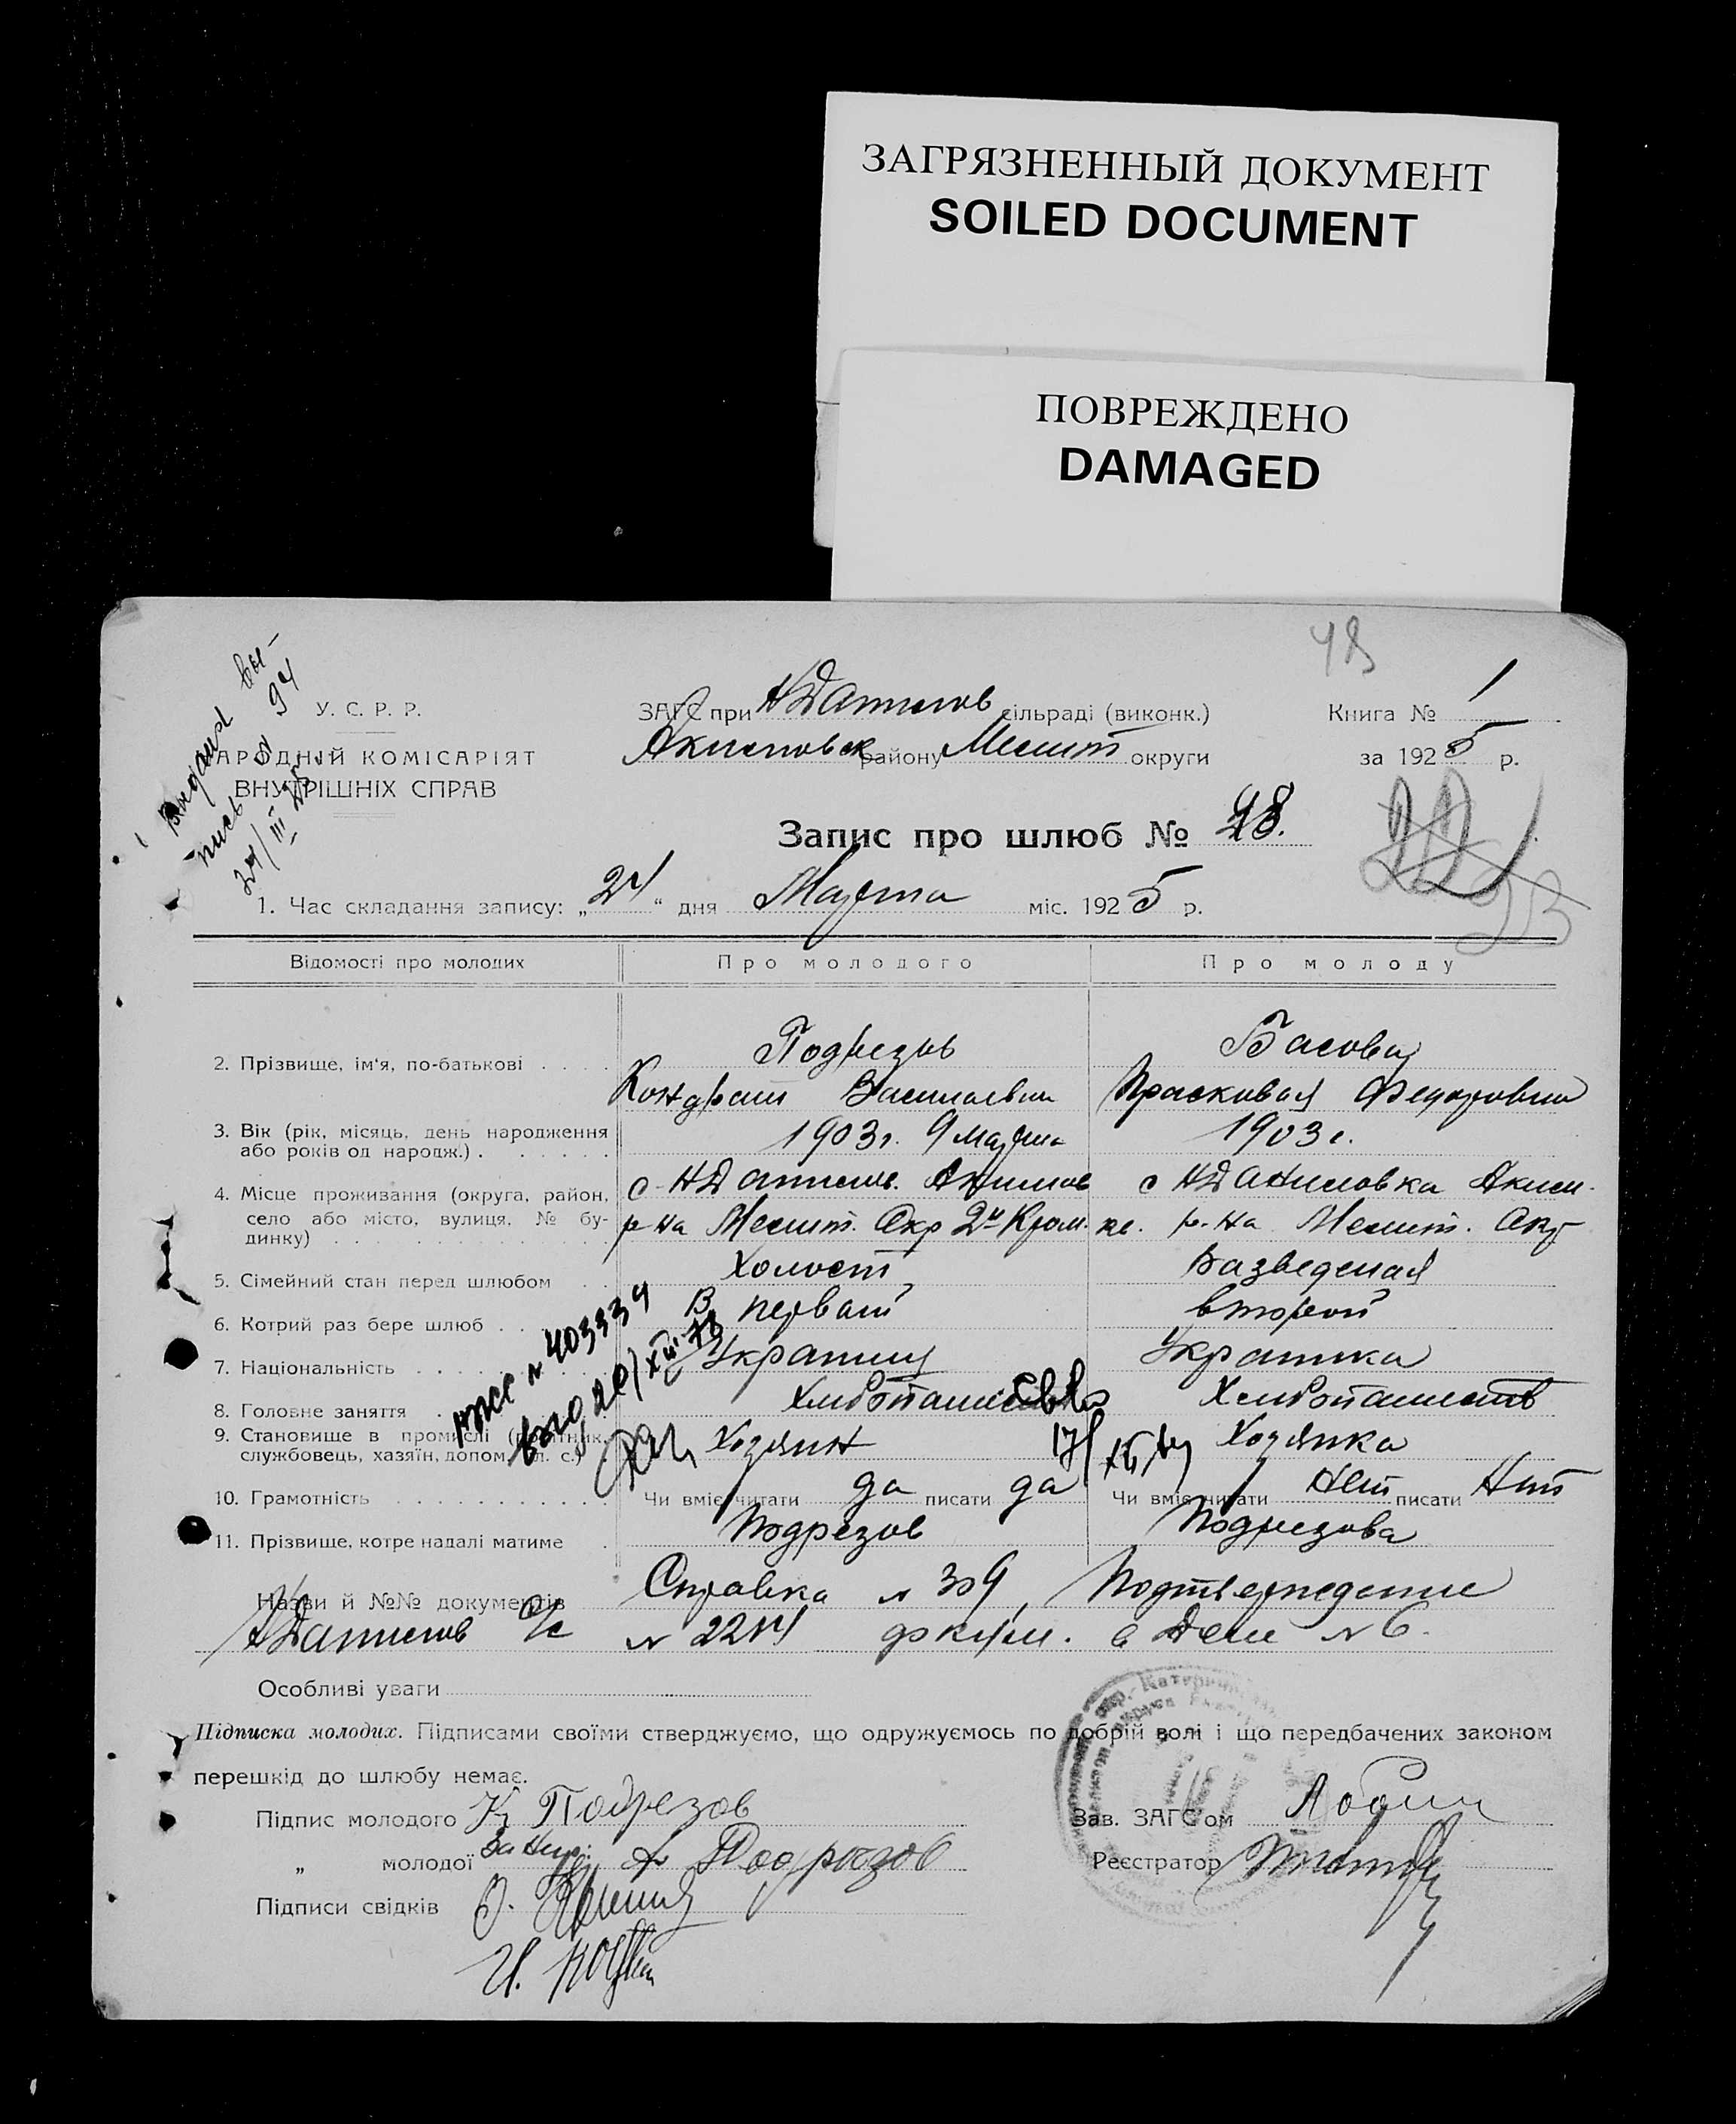 ЗАГРЯЗНЕННЫЙ ДОКУМЕНТ
SOILED DOCUMENT
ПОВРЕЖДЕНО
DAMAGED
У. С. Р. Р.
НАРОДНИЙ КОМІСАРІЯТ
ВНУТРІШНІХ СПРАВ
ЗАГС при НДанилов сільраді (виконк.)
Акимовск району Мелит округи
Книга № 1
за 1925 р.
Запис про шлюб № 48.
1. Час складання запису: „24“ дня Марта міс. 1925 р.
Відомості про молодих Про молодого Про молоду
2. Прізвище, ім'я, по-батькові Подрезов Басовая
Кондрат Васильевич Прасковая Федоровна
3. Вік (рік, місяць, день народження або років од народж.) 1903г. 9 марта 1903г.
4. Місце проживання (округа, район, село або місто, вулиця, № будинку) с НДанилов. Акимов с НДаниловка Аким.
р-на Мелит. Окр р-на Мелит. Окр
5. Сімейний стан перед шлюбом Холост Разведеная
6. Котрий раз бере шлюб В первый второй
7. Національність Украинец Украинка
8. Головне заняття Хлебопашество Хлебопашеств
9. Становище в промислі (робітник, службовець, хазяїн, допом. чл. с.) Хозяин Хозяика
10. Грамотність Чи вміє читати да писати да Чи вміє читати Нет писати Нет
11. Прізвище, котре надалі матиме Подрезов Подрезова
Назви й №№ документів Справка № 309, Подтверждение
НДанилов с/с в Деле № 6.
Особливі уваги
Підписка молодих. Підписами своїми стверджуємо, що одружуємось по добрій волі і що передбачених законом
перешкід до шлюбу немає.
Підпис молодого К Подрезов
„ молодої За негр. Подрезов
Підписи свідків
Зав. ЗАГС'ом
Реєстратор